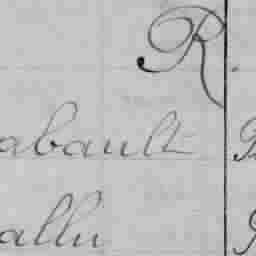 R.
abault
allu